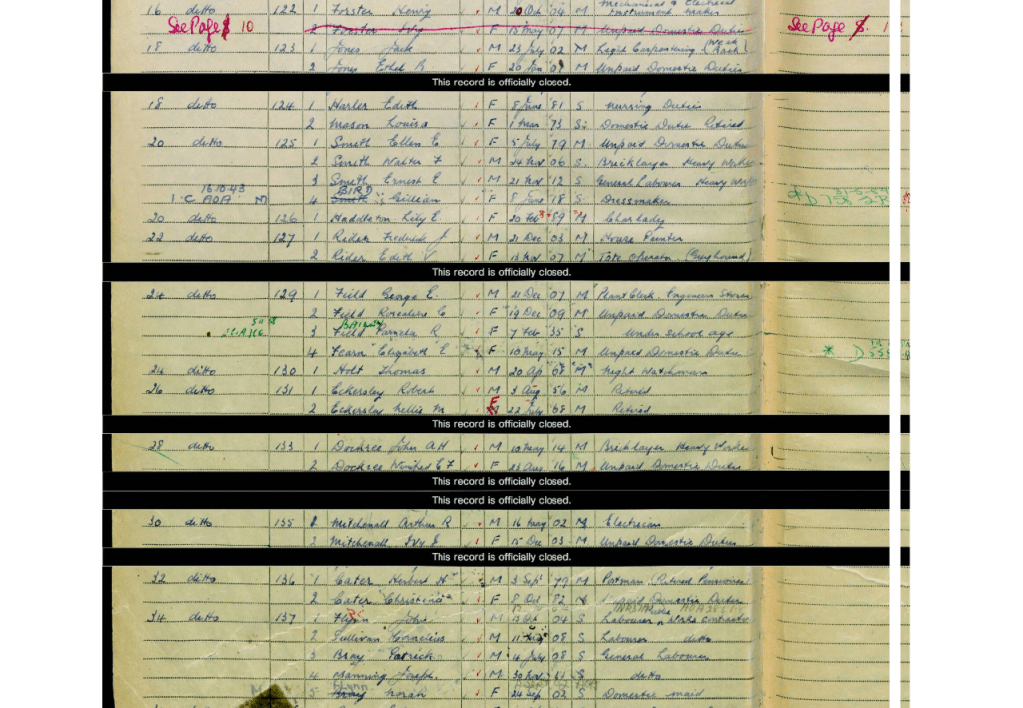 16 ditto 122 1 Forster Henry M 20 Oct 04 M Mechanical & Electrical Instrument Maker
See Page 10 2 Forster Ivy F 15 May 07 M Unpaid Domestic Duties See Page
18 ditto 123 1 Jones Jack M 23 July 02 M Light Carpentering (Weak Back)
2 Jones Ethel B F 20 Jan 07 M Unpaid Domestic Duties
This record is officially closed.
18 ditto 124 1 Harler Edith F 8 June 81 S Nursing Duties
2 Mason Louisa F 1 Mar 73 S Domestic Duties Retired
20 ditto 125 1 Smith Ellen E F 5 July 79 M Unpaid Domestic Duties
2 Smith Walter F M 24 Nov 06 S Bricklayer Heavy Worker
3 Smith Ernest E M 21 Nov 12 S General Labourer Heavy Worker
16.10.43 BIRD
M 4 Smith Gillian F 8 June 18 S Dressmaker
20 ditto 126 1 Haddleton Lily E F 20 Feb 89 M Charlady
22 ditto 127 1 Rider Frederick J M 21 Dec 03 M House Painter
2 Rider Edith V F 13 Nov 07 M Tote Operator (Greyhound)
This record is officially closed.
24 ditto 129 1 Field George E. M 21 Dec 07 M Plant Clerk. Engineers Stores
2 Field F 19 Dec 09 M Unpaid Domestic Duties
3 Field Pamela R F 7 Feb 35 S Under school age
4 Fearn Elizabeth E F 10 May 15 M Unpaid Domestic Duties
24 ditto 130 1 Holt Thomas M 20 Ap 68 M Night Watchman
26 ditto 131 1 Eckersley Robert M 3 Aug 56 M Retired
2 Eckersley Nellie M F 22 July 68 M Retired
This record is officially closed.
28 ditto 133 1 Dockree John A H M 10 May 14 M Bricklayer Heavy Worker
2 Dockree Winifred E F F 23 Aug 16 M Unpaid Domestic Duties
This record is officially closed.
This record is officially closed.
30 ditto 135 1 Mitchenall Arthur R M 16 May 02 M Electrician
2 Mitchenall Ivy F 15 Dec 03 M Unpaid Domestic Duties
This record is officially closed.
32 ditto 136 1 Cater Herbert H M 3 Sept 79 M Postman (Retired Pensioner)
2 Cater Christina F 8 Oct 82 M Unpaid Domestic Duties
34 ditto 137 1 Flynn John M 13 Oct 04 S Labourer Works contractor
2 Sullivan Cornelius M 11 08 S Labourer ditto
3 Bray Patrick M 4 July 08 S General Labourer
4 Manning Joseph M 30 Nov 11 S ditto
5 Bray Norah F 24 Sep 02 S Domestic maid